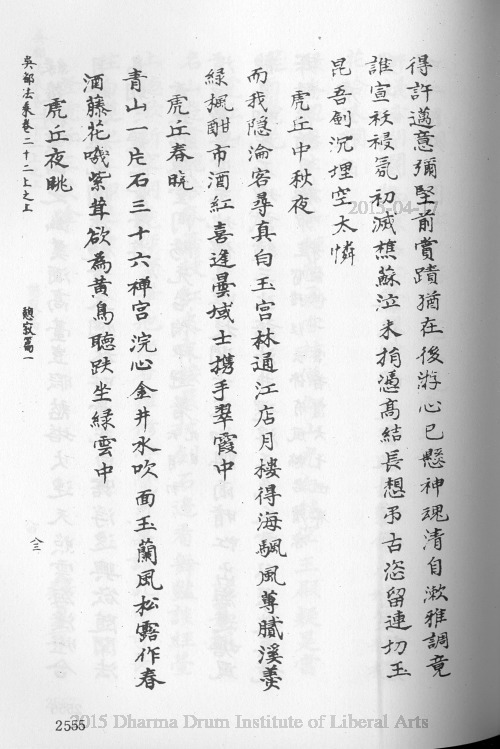 得許邁意彌堅前賞蹟猶在後游心已懸神魂清自漱雅調竟
誰宣祅祲氛初滅樵蘇泣未捐憑高結長想弔古恣留連切玉
昆吾劍沉埋空太憐
虎丘中秋夜
而我隱淪客尋真白玉宮林通江店月樓得海颿風蓴膩溪羹
綠楓酣市酒紅喜逢曇域士攜手翠霞中
虎丘春晓
青山一片石三十六禪宮浣心金井水吹面玉蘭風松露作春
酒藤花哦紫茸欲為黃鳥聽趺坐綠雲中
虎丘夜眺
吳都法乘卷二十二上之上
憩寂篇一
八三
2555
2015-04-17
2015 Dharma Drum Institute of Liberal Arts